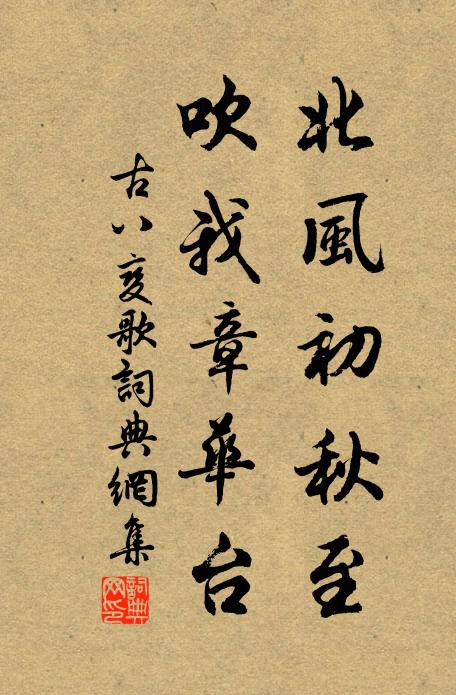 北風初秋至
吹我章華台
古八变歌詞典網集
詞典网印